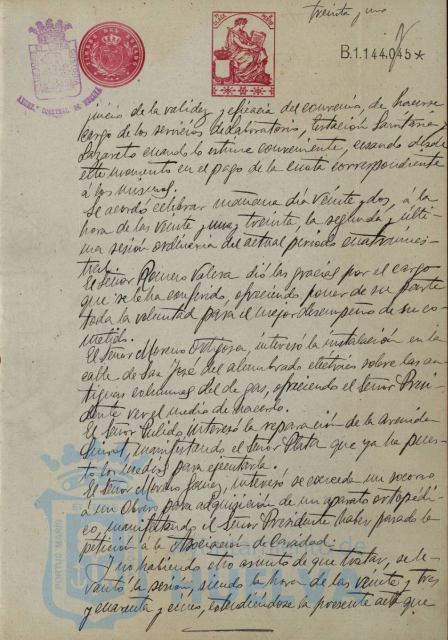 treinta y uno
B.1.144.045*
juicio de la validez y eficacia del convenio, de hacerse
cargo de los servicios de Laboratorio, Estación Sanitaria y
Lazareto cuando lo estime conveniente, cesando desde
este momento en el pago de la cuota correspondiente
á los mismos.
Se acordó celebrar mañana día veinte y dos, á la
hora de las veinte y una y treinta, la segunda y últi-
ma sesión ordinaria del actual período cuatrimes-
tral.
El Señor Romero Valera dió las gracias por el cargo
que se le ha conferido, ofreciendo poner de su parte
toda la voluntad para el mejor desempeño de su co-
metido.
El Señor Moreno Ortigosa, interesó la instalación en la
calle de San José del alumbrado eléctrico sobre las an-
tiguas columnas del de gas, ofreciendo el Señor Presi-
dente ver el medio de hacerlo.
El Señor Pulido interesó la reparación de la Avenida
manifestando el Señor Plata que ya ha pues-
to los medios para ejecutarla.
El Señor Moreno interesó se conceda un socorro
á un obrero para adquisición de un aparato ortopédi-
co, manifestando el Señor Presidente haber pasado la
petición á la Asociación de Caridad.
Y no habiendo otro asunto de que tratar, se le-
vantó la sesión, siendo la hora de las veinte y tres
y cuarenta y cinco, extendiéndose la presente acta que